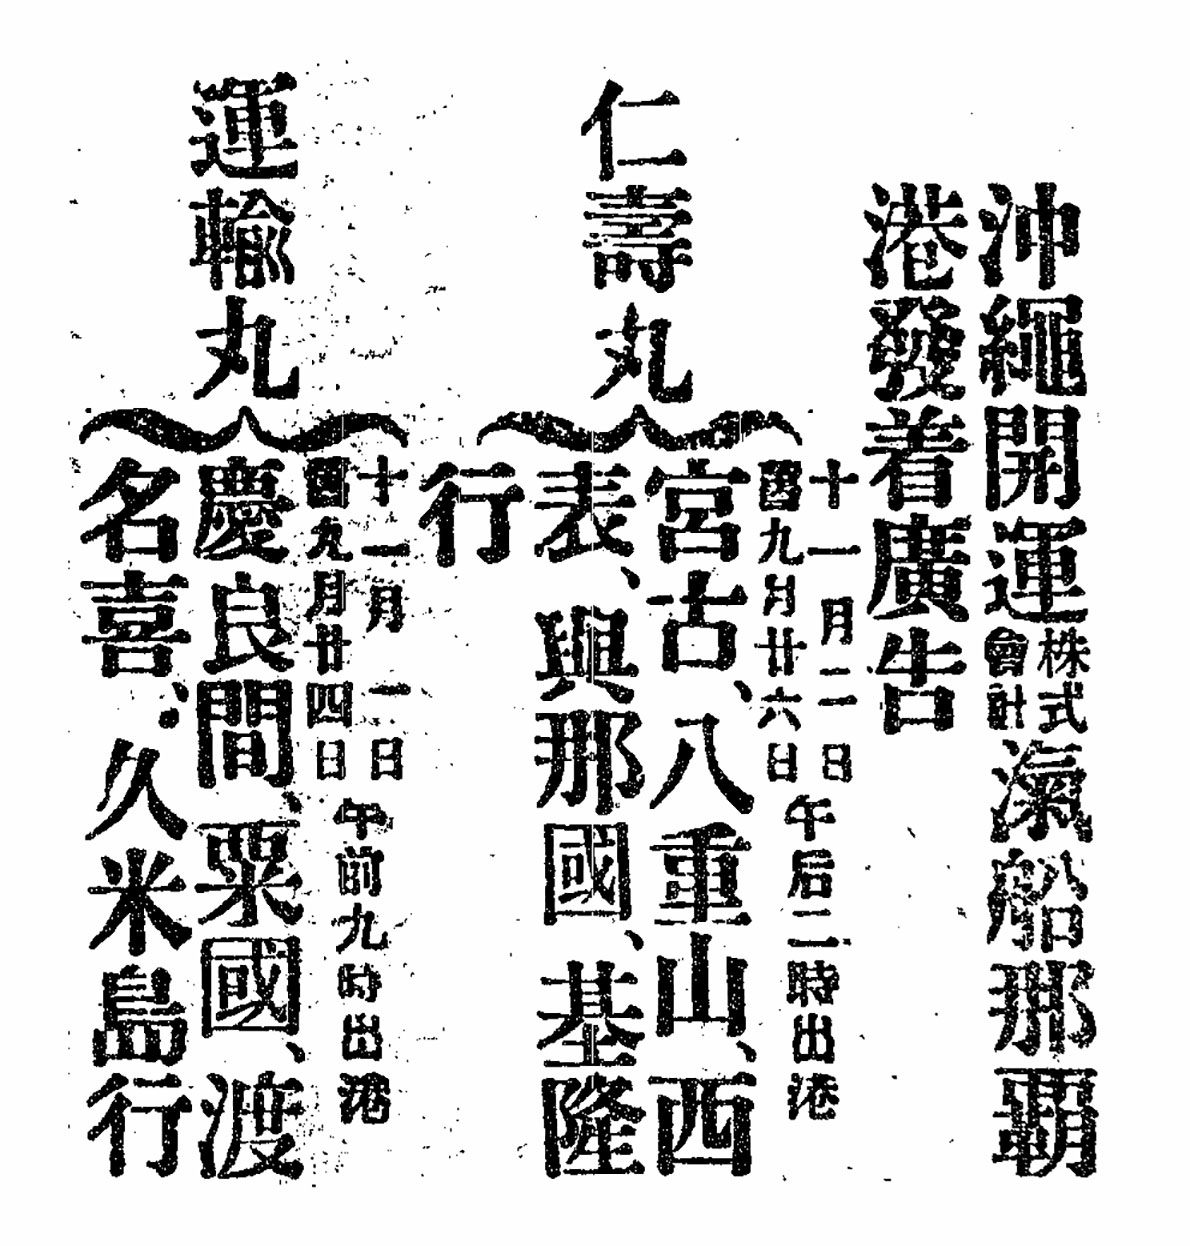 沖繩開運株式會計滊船那覇
港發着廣告
仁壽丸
十一月二日
舊九月廿六日
午后二時出港
宮古、八重山、西
表、與那國、基隆
行
運輸丸
十一月一日
舊九月廿四日
午前九時出港
慶良間、粟國、渡
名喜、久米島行